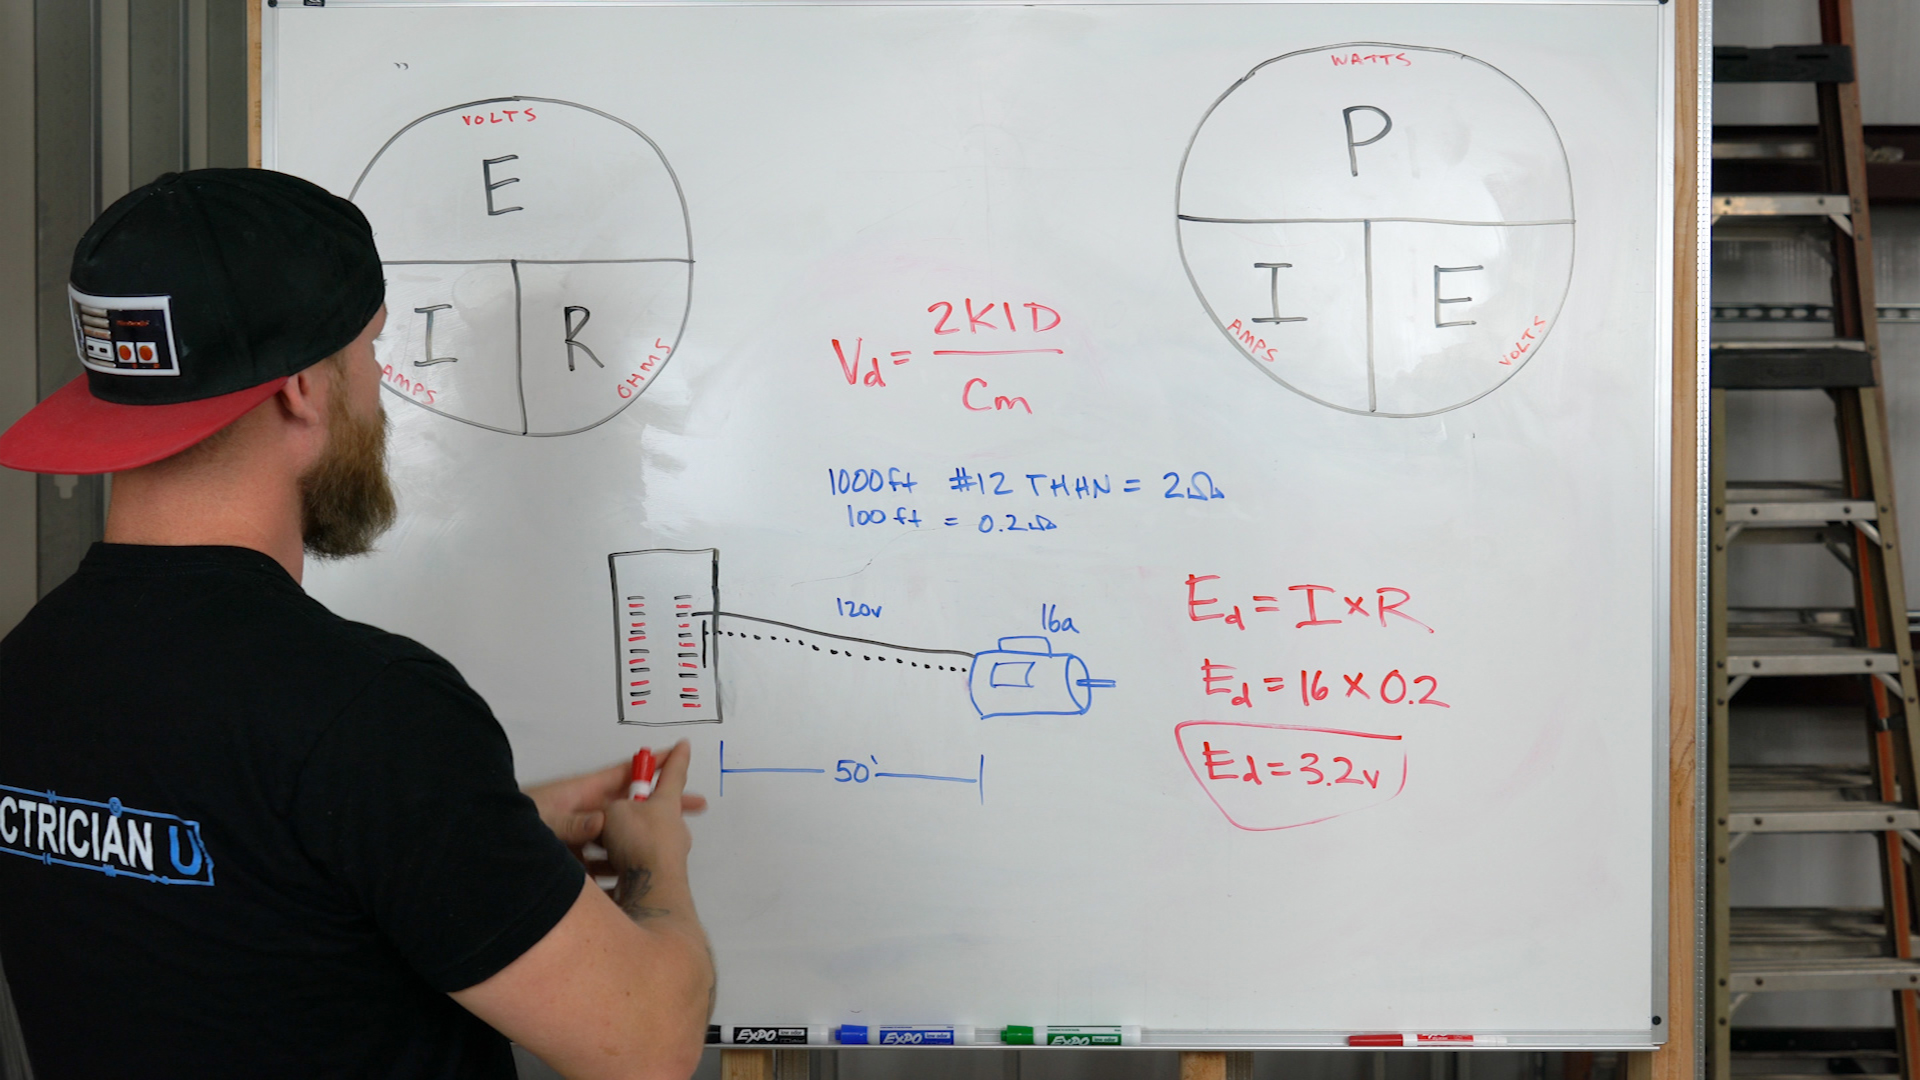 VOLTS
E
I
R
AMPS
OHMS
WATTS
P
I
E
AMPS
VOLTS
Vd = 2KID
Cm
1000ft #12 THHN = 2Ω
100ft = 0.2Ω
120v
16a
50'
Ed = I x R
Ed = 16 x 0.2
Ed = 3.2v
CTRICIAN U
EXPO
EXPO